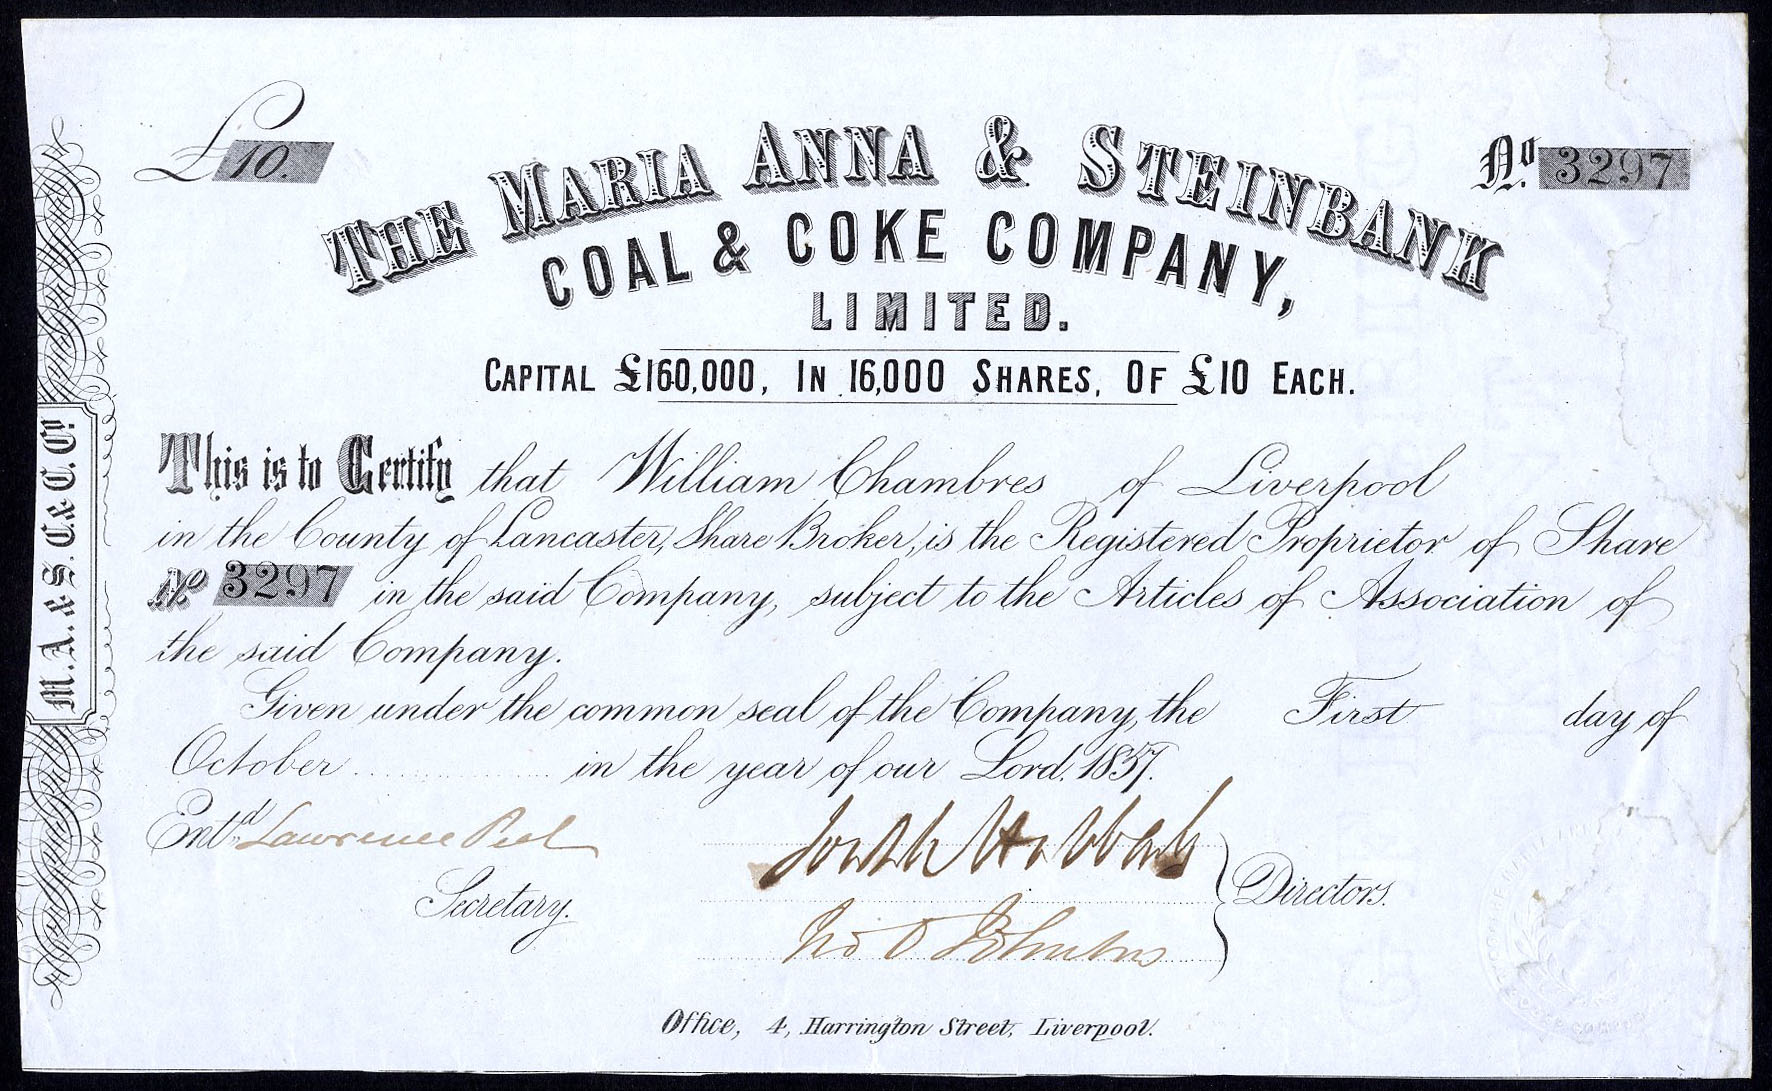 £10.
No. 3297
THE MARIA ANNA & STEINBANK
COAL & COKE COMPANY,
LIMITED.
CAPITAL £160,000, IN 16,000 SHARES, OF £10 EACH.
This is to Certify that William Chambres of Liverpool
in the County of Lancaster, Share Broker, is the Registered Proprietor of Share
No 3297 in the said Company, subject to the Articles of Association of
the said Company.
Given under the common seal of the Company, the First day of
October in the year of our Lord, 1857.
Entd. Lawrence Peel
Secretary.
Directors.
Office, 4, Harrington Street, Liverpool.
M. A. & S. C. & C. Co.